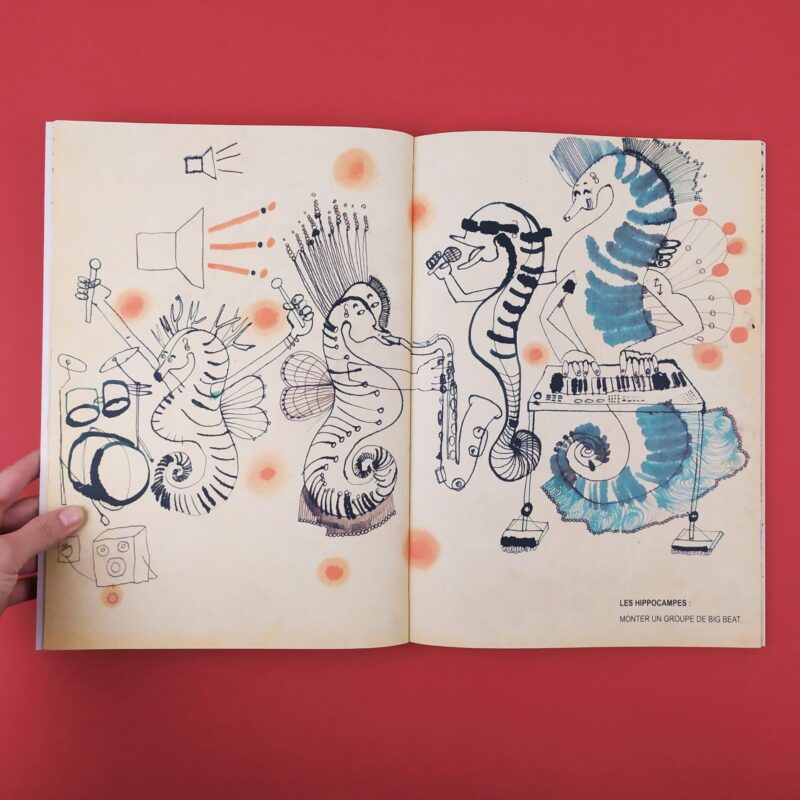 LES HIPPOCAMPES :
MONTER UN GROUPE DE BIG BEAT.